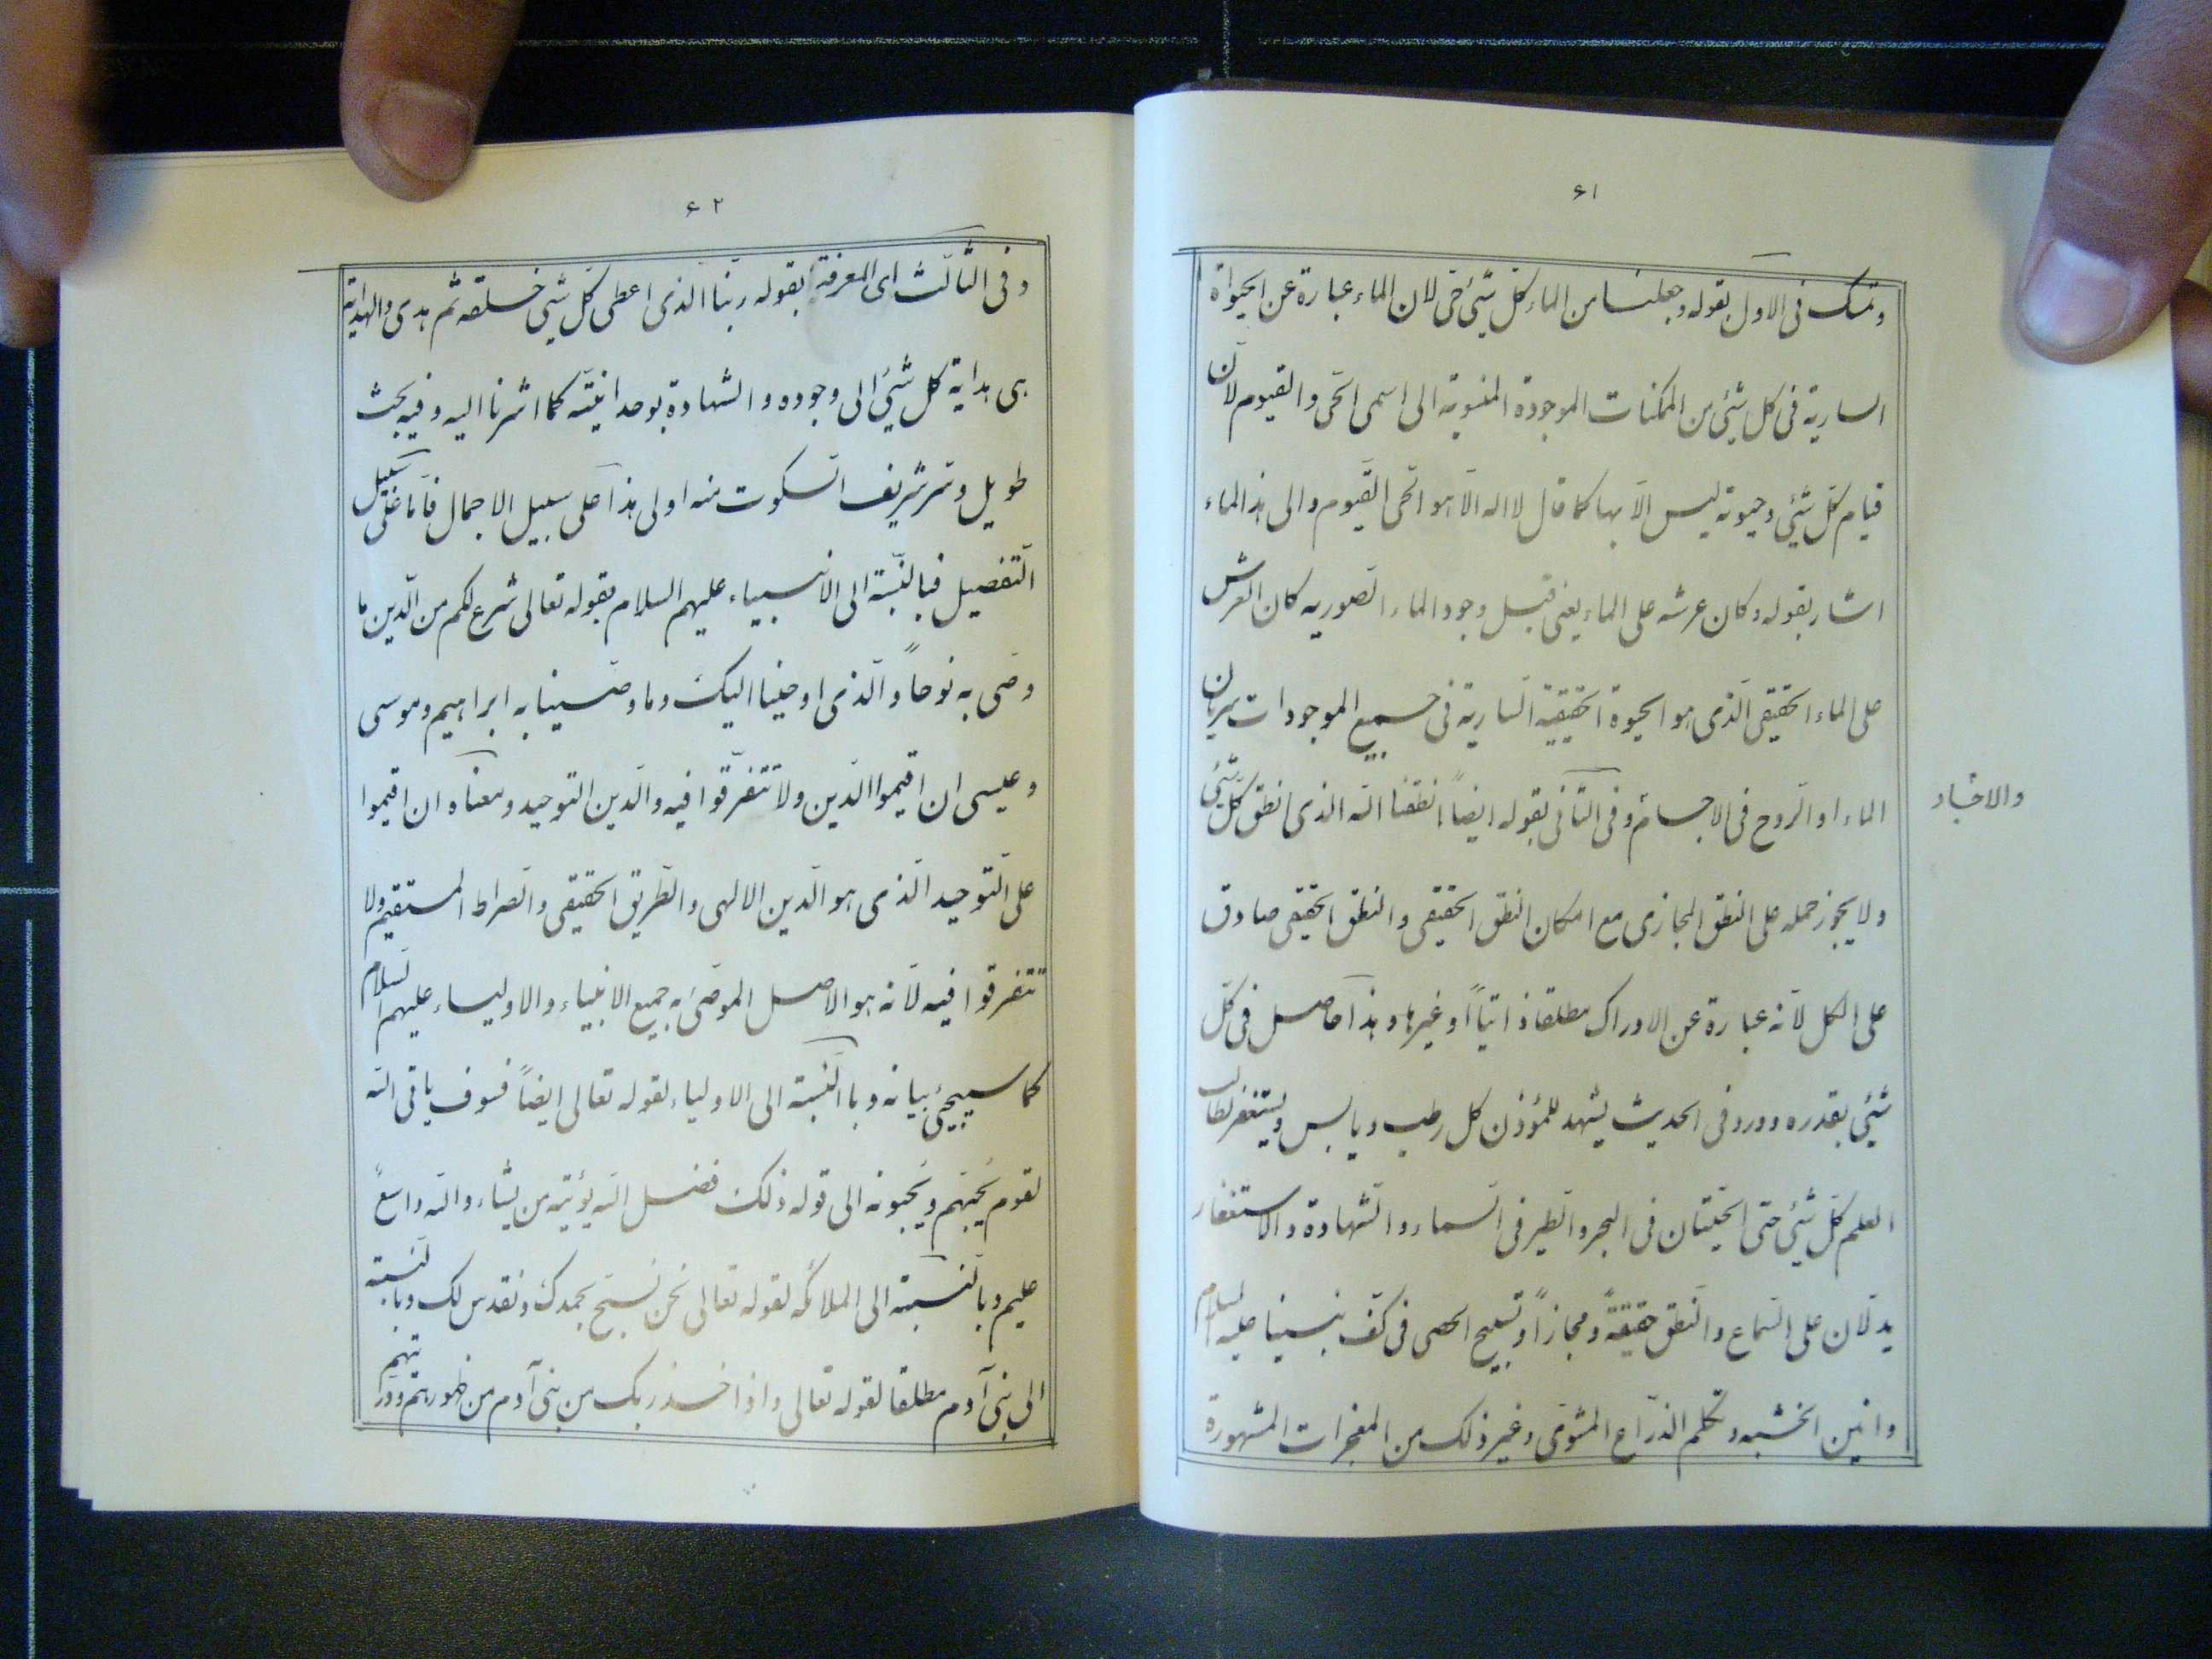 ۶۱
وتمسک فی الاول بقوله وجعلنا من الماء کلّ شیٔ حیّ لان الماء عبارة عن الحیواة
الساریة فی کل شیٔ من الممکنات الموجودة المنسوبة الی اسمی الحیّ والقیوم لانّ
قیام کلّ شیٔ وحیوته لیس الّا بها کما قال لا اله الّا هو الحیّ القیّوم والی هذ الماء
اشار بقوله وکان عرشه علی الماء یعنی قبل وجود الماء الصوریه کان العرش
علی الماء الحقیقی الّذی هو الحیوة الحقیقیة السّاریة فی جمیع الموجودات سریان
الماء او الرّوح فی الاجسام وفی الثّانی بقوله ایضاً انطقنا الله الذی انطق کلّ شیٔ
والاخبار
ولا یجوز حمله علی النطق المجازی مع امکان النطق الحقیقی والنطق الحقیقی صادق
علی الکل لانّه عبارة عن الادراک مطلقا ذاتیّاً او غیرها وهذا حاصل فی کلّ
شیٔ بقدره وورد فی الحدیث یشهد للمؤذن کل رطب ویابس ویستغفر لطالب
العلم کلّ شیٔ حتی الحیتان فی البحر والطیر فی السماء والشهادة والاستغفار
یدلّان علی السّماع والنّطق حقیقةً ومجازاً وتسبیح الحصی فی کفّ نبینا علیه السلام
وانین الخشبه وتکلم الذرّاع المشوّی وغیر ذلک من المعجزات المشهورة
۶۲
وفی الثّالث ای المعرفة بقوله ربّنا الّذی اعطی کلّ شیٔ خلقه ثم هدی والهدایة
هی هدایة کل شیٔ الی وجوده والشهادة بوحدانیّته کما اشرنا الیه وفیه بحث
طویل وسر شریف السکوت منه اولی هذا علی سبیل الاجمال فامّا علی سبیل
التفصیل فبالنّسبة الی الانبیاء علیهم السلام فقوله تعالی شرع لکم من الّدین ما
وصّی به نوحاً والّذی اوحینا الیک وما وصّینا به ابراهیم وموسی
وعیسی ان اقیموا الّدین ولا تتفرّقوا فیه والّدین التوحید ومعناه ان اقیموا
علی التّوحید الّذی هو الّدین الالهی والطّریق الحقیقی والصراط المستقیم ولا
تتفرقوا فیه لانّه هو الاصل الموصّیٰ به جمیع الانبیاء والاولیاء علیهم السّلام
کما سیجیٔ بیانه وبا النّسبة الی الاولیاء لقوله تعالی ایضاً فسوف یاتی الله
لقوم یُحبّهم ویُحبونه الی قوله ذلک فضل الله یؤتیه من یشاء والله واسعٌ
علیم وبالنّسبة الی الملائکه لقوله تعالی نحن نسبّح بحمدک ونقدس لک وبالنّسبة
الی بنی آدم مطلقا لقوله تعالی واذ اخذ ربک من بنی آدم من ظهورهم وذرّیتهم